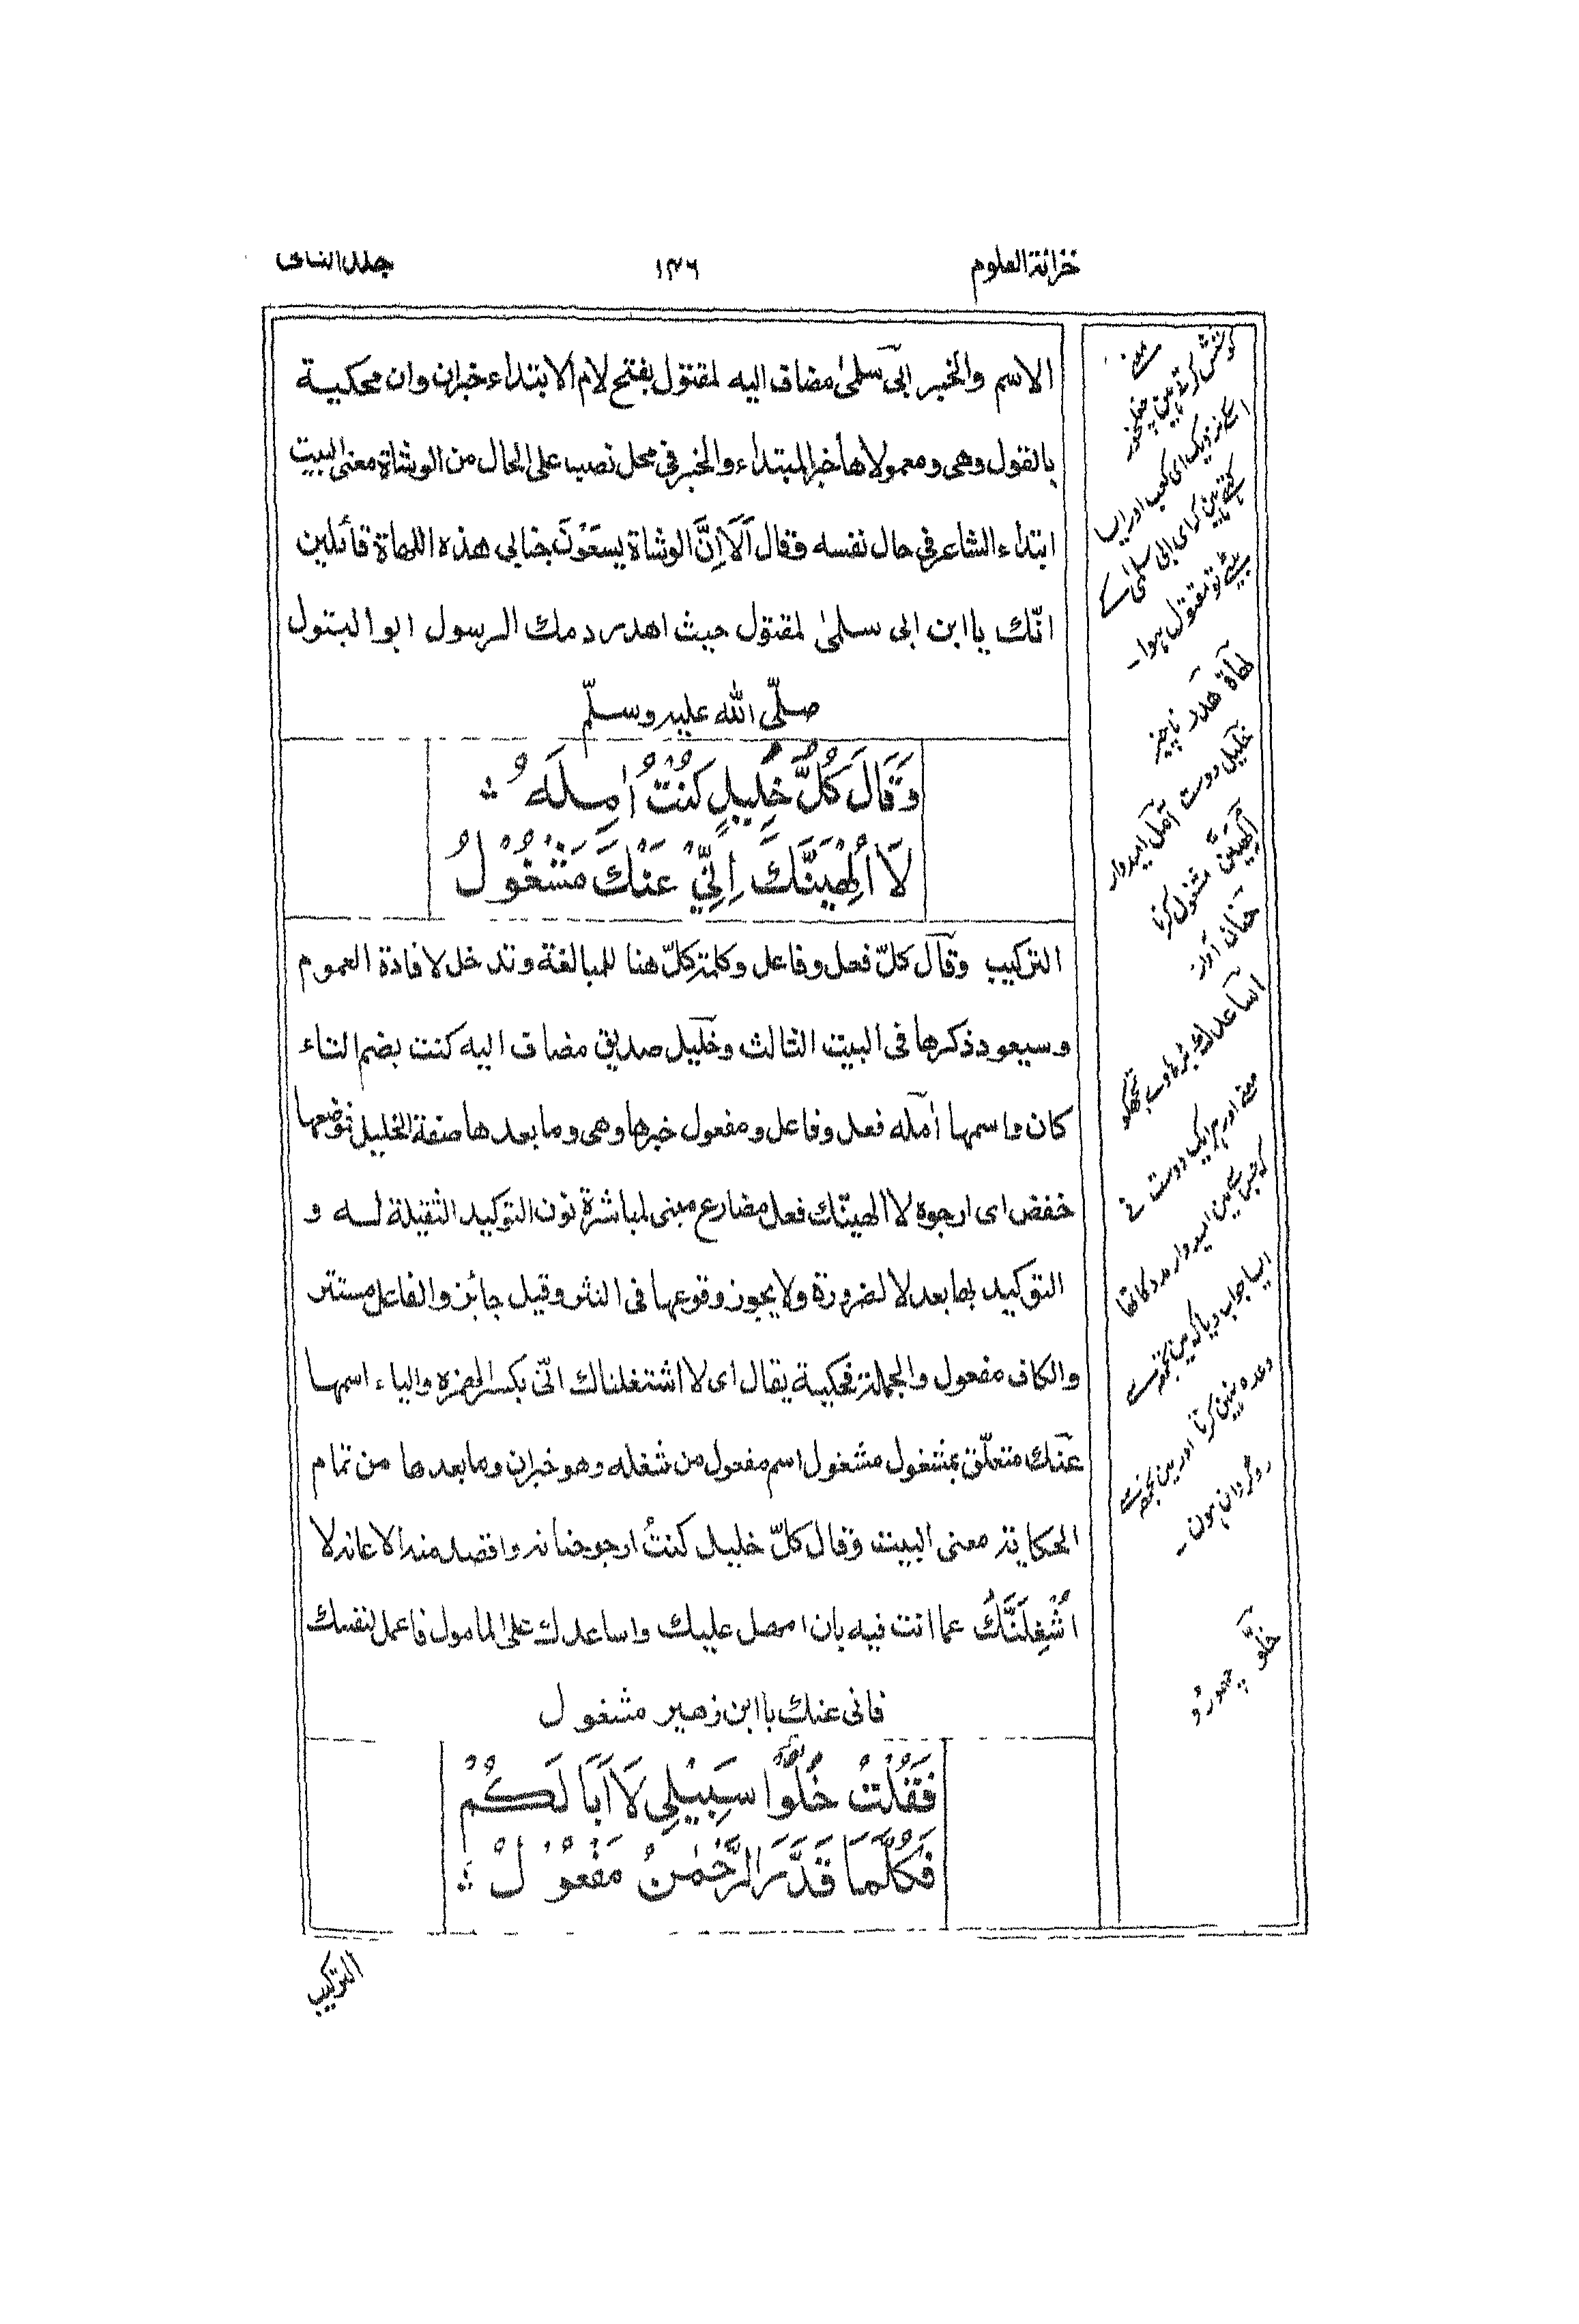 خزانة العلوم
١٣٦
جلد الثانى
الاسم والخبر ابى سلمىٰ مضاف اليه لمقتول بفتح لام الابتداء خبر ان وان محكية
بالقول وهى ومعمولاها خبر المبتداء والخبر فى محل نصب على الحال من الوشاة معنى البيت
ابتداء الشاعر فى حال نفسه فقال اَلَا اِنَّ الوشاة يسعَوْنَ جنابى هذه اللهاة قائلين
انّك يا ابن ابى سلمىٰ لمقتول حيث اهدر دمك الرسول ابو البتول
صلّى الله عليه وسلّم
وَقَالَ كُلُّ خَلِيلٍ كُنْتُ اٰمِلَهُ
لَا اُلْهِيَنَّكَ اِنِّيْ عَنْكَ مَشْغُوْلُ
التركيب وقال كلّ فعل وفاعل وكلمة كلّ هنا للمبالغة وتدخل لافادة العموم
وسيعود ذكرها فى البيت الثالث وخليل صديق مضاف اليه كنت بضم التاء
كان واسمها اٰمله فعل وفاعل ومفعول خبرها وهى وما بعدها صفة الخليل فموضعها
خفض اى ارجوه لا الهينّك فعل مضارع مبنى لمباشرة نون التوكيد الثقيلة له و
التوكيد بها بعد لا لضرورة ولا يجوز وقوعها فى النثر وقيل جائز والفاعل مستتر
والكاف مفعول والجملة محكية يقال اى لا اشتغلناك انّى بكسر الهمزه والياء اسمها
عنك متعلّق بمشغول مشغول اسم مفعول من شغله وهو خبر ان وما بعدها من تمام
الحكاية معنى البيت وقال كلّ خليل كنتُ ارجو حنانه واقصد منه الاعانه لا
اُشْغِلَنَّكَ عما انت فيه بان اسهل عليك واساعدك على المامول فاعمل لنفسك
فانى عنك يا ابن زهير مشغول
فَقُلْتُ خَلُّوا سَبِيْلِى لَا اَبَا لَكُمْ
فَكُلُّمَا قَدَّرَ الرَّحْمٰنُ مَفْعُوْلُ
التركيب
كوشش كرتے ہين چغلخور
اسكے نزديک اى كعب اور ايسا
كہتے ہين كہ اى ابى سلمىٰ كے
بيٹے تو مقتول ہوا۔
لهاة هدر ناچيز
خليل دوست آمل اميدوار
الهين مشغول كرنا
حنان آواز
اساعدك بڑهاوے تجھكو
معنے اور ہر يک دوست نے
كہ جس سے مين اميدوار مدد كا تھا
ايسا جواب ديا كہ مين تجھ سے
وعده نہين كرتا اور مين تجھ سے
روگردان ہون۔
خلّو چھوڑو